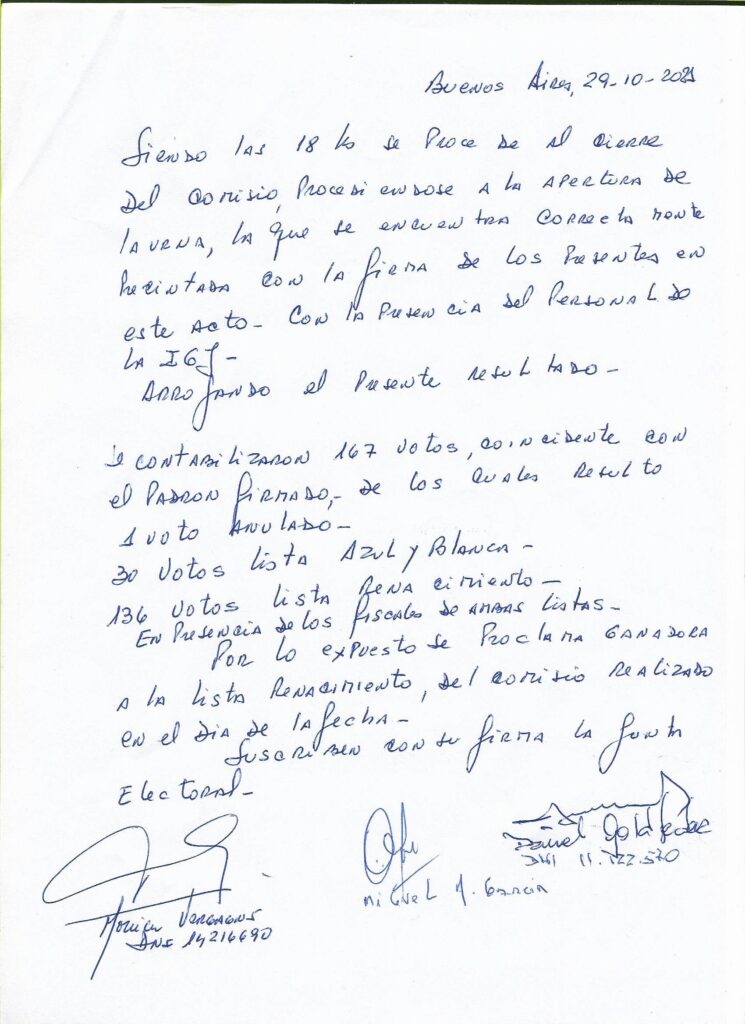 Buenos Aires, 29-10-2021
Siendo las 18 hs se Procede al cierre
del comisio, Procediendose a la apertura de
la urna, la que se encuentra correctamente
Precintada con la firma de los Presentes en
este acto- Con la Presencia del Personal de
la IGJ-
Arrojando el Presente resultado-
Se contabilizaron 167 votos, coincidente con
el Padron firmado,- de los cuales resulto
1 voto anulado-
30 votos lista Azul y Blanca-
136 votos lista Renacimiento-
En Presencia de los fiscales de ambas listas-
Por lo expuesto se Proclama ganadora
a la lista Renacimiento, del comisio realizado
en el dia de la fecha-
Suscriben con su firma la Junta
Electoral-
Daniel
DNI 11.722.570
Miguel A. Garcia
DNI 14216690